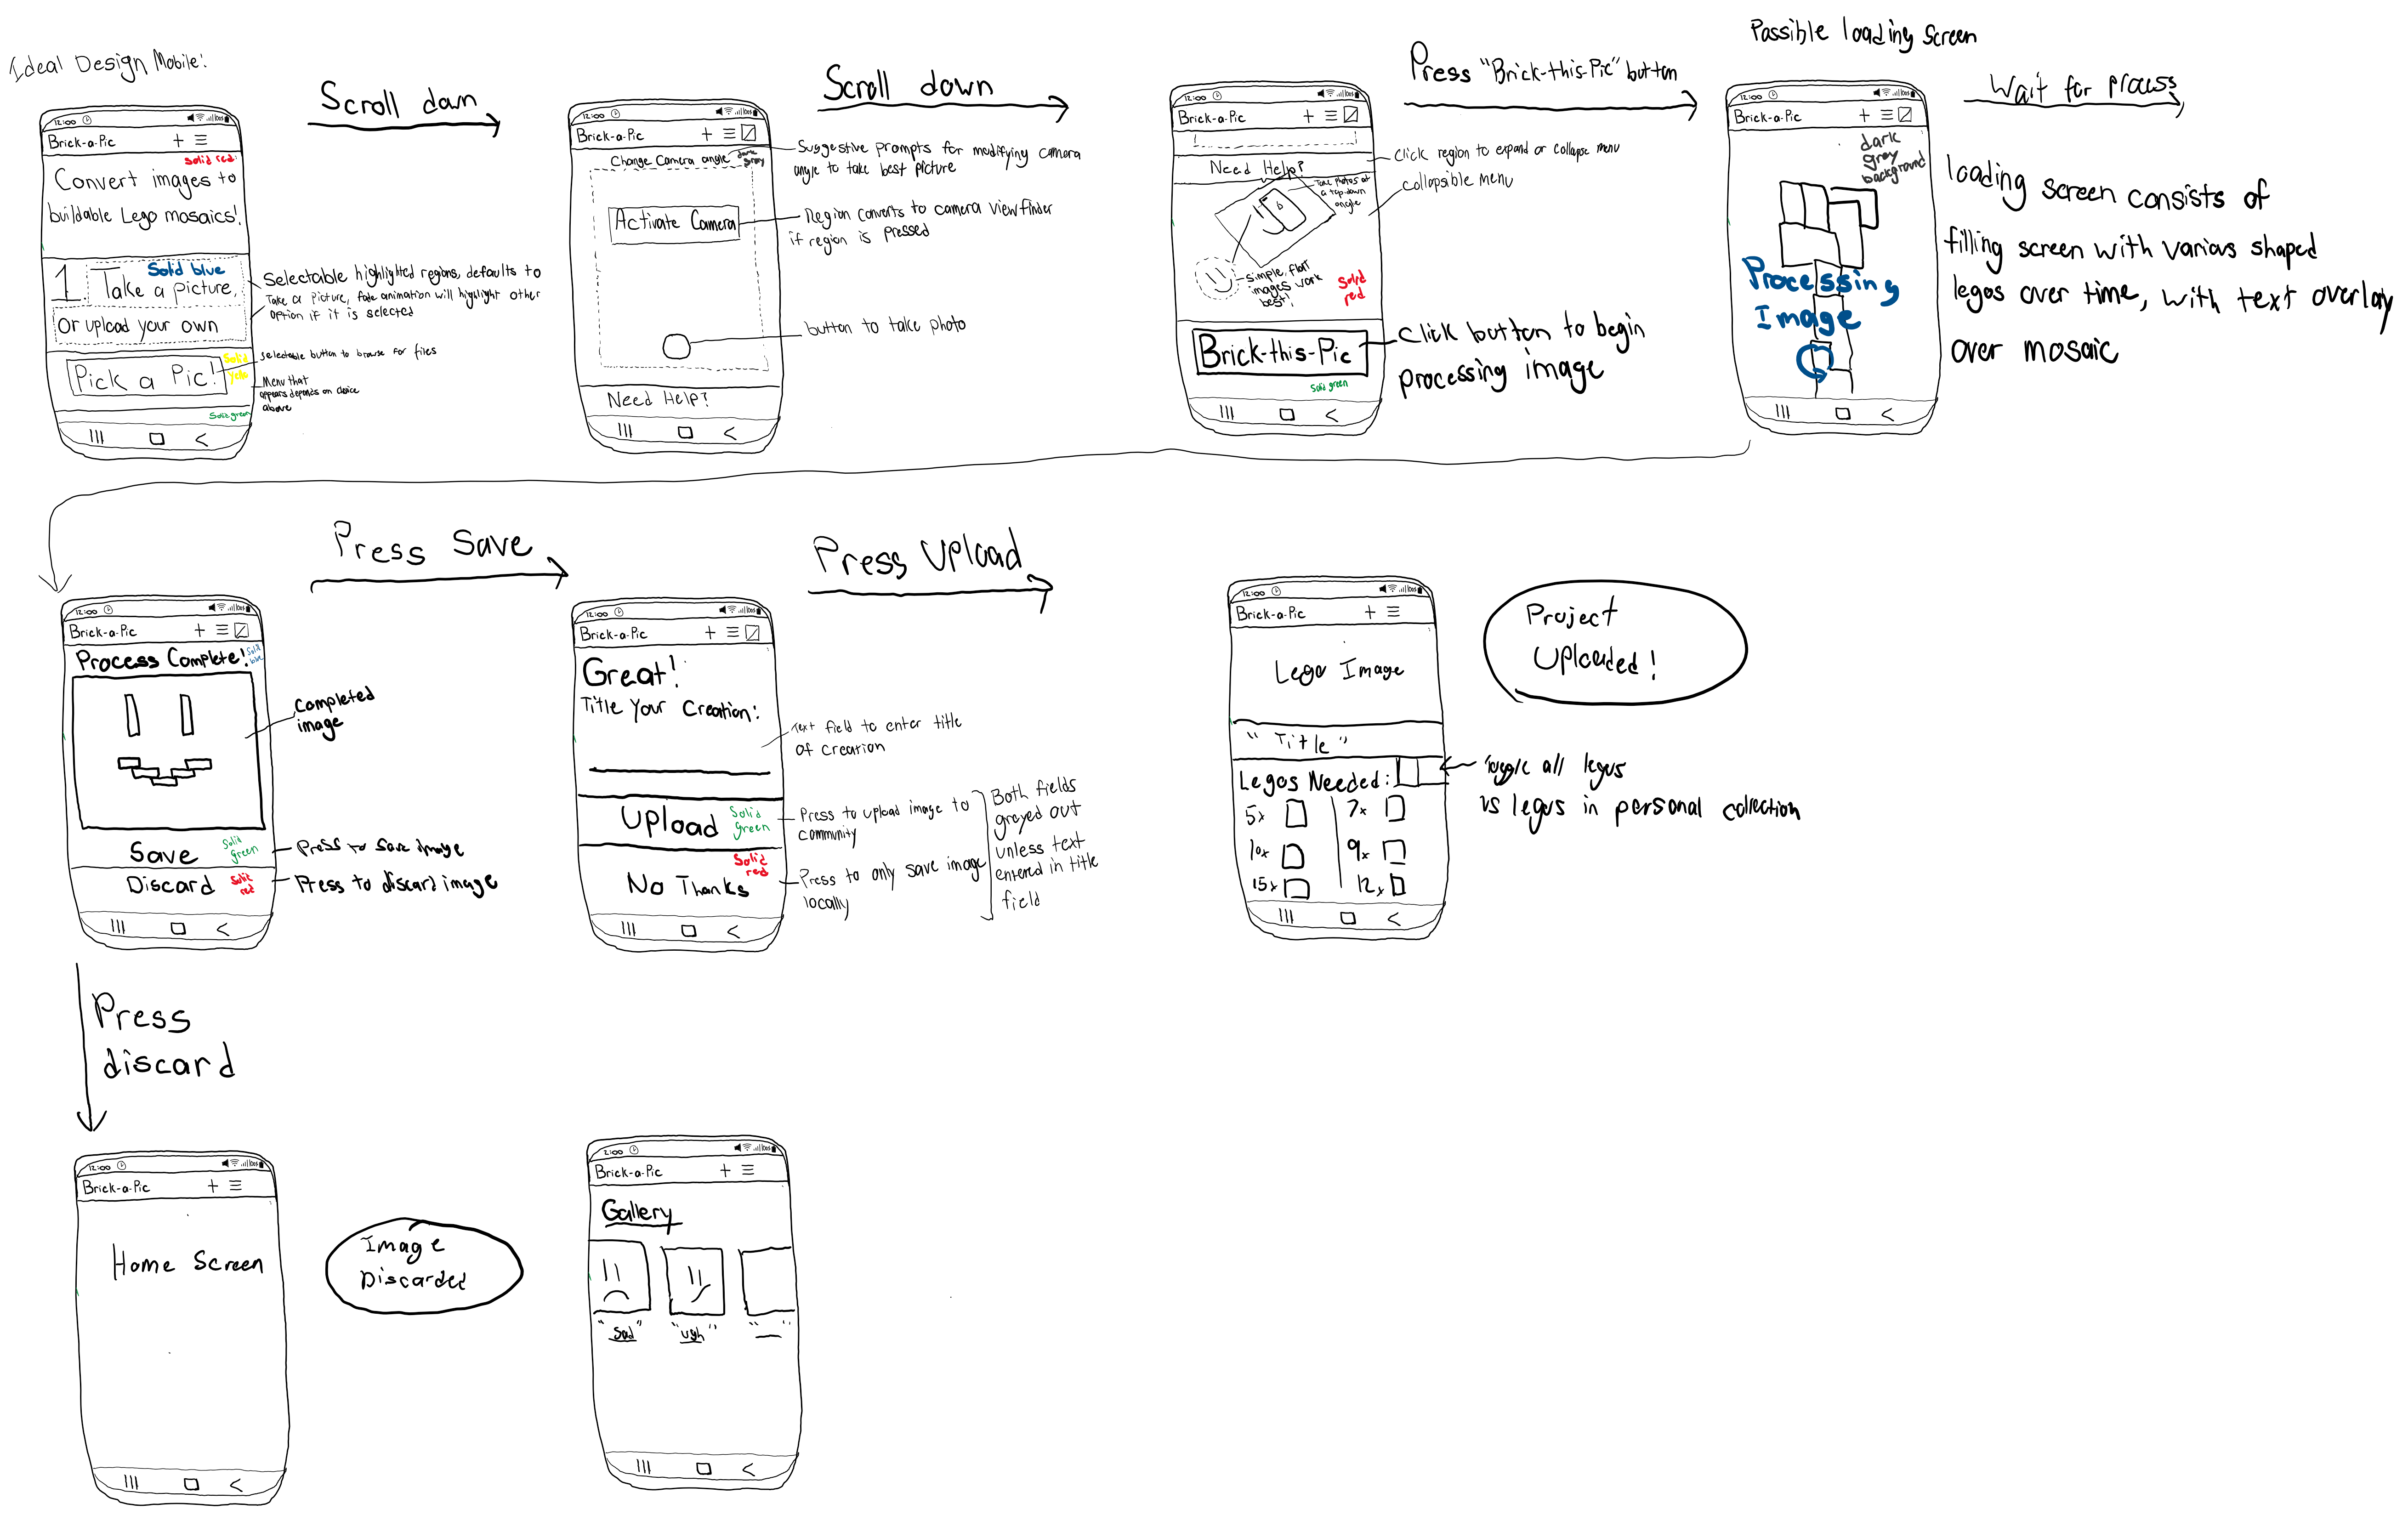 Ideal Design Mobile:
Scroll down
Scroll down
Press "Brick-this-Pic" button
Possible loading screen
Wait for process
12:00
Brick-a-Pic
Solid red
Convert images to
buildable Lego mosaics!
1. Take a picture,
Solid blue
or upload your own
Pick a Pic!
Solid
yello
Solid green
Selectable highlighted regions, defaults to
Take a picture, fade animation will highlight other
option if it is selected
Selectable button to browse for files
Menu that
appears depends on choice
above
12:00
Brick-a-Pic
Change Camera angle
dark
grey
Activate Camera
Need Help?
Suggestive prompts for modifying camera
angle to take best picture
Region converts to camera viewfinder
if region is pressed
button to take photo
12:00
Brick-a-Pic
Need Help?
Take photos at
a top-down
angle
simple, flat
images work
best!
Solid
red
Brick-this-Pic
Solid green
Click region to expand or collapse menu
collapsible menu
Click button to begin
processing image
12:00
Brick-a-Pic
dark
grey
background
Processing
Image
loading screen consists of
filling screen with various shaped
legos over time, with text overlay
over mosaic
Press Save
Press Upload
12:00
Brick-a-Pic
Process Complete!
Solid
blue
Save
Solid
green
Discard
Solid
red
Completed
image
Press to save image
Press to discard image
12:00
Brick-a-Pic
Great!
Title Your Creation:
Upload
Solid
green
Solid
red
No Thanks
Text field to enter title
of creation
Press to upload image to
community
Press to only save image
locally
Both fields
greyed out
unless text
entered in title
field
12:00
Brick-a-Pic
Lego Image
"Title"
Legos Needed:
5x 7x
10x 9x
15x 12x
Project
Uploaded!
Toggle all legos
vs legos in personal collection
Press
discard
12:00
Brick-a-Pic
Home Screen
Image
Discarded
2:00
Brick-a-Pic
Gallery
"Sad" "Ugh" " "